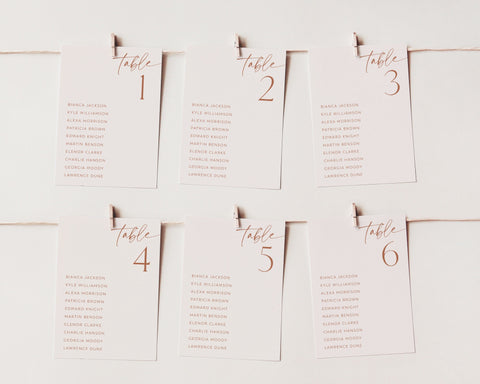 table
1
BIANCA JACKSON
KYLE WILLIAMSON
ALEXA MORRISON
PATRICIA BROWN
EDWARD KNIGHT
MARTIN BENSON
ELENOR CLARKE
CHARLIE HANSON
GEORGIA MOODY
LAWRENCE DUNE
table
2
BIANCA JACKSON
KYLE WILLIAMSON
ALEXA MORRISON
PATRICIA BROWN
EDWARD KNIGHT
MARTIN BENSON
ELENOR CLARKE
CHARLIE HANSON
GEORGIA MOODY
LAWRENCE DUNE
table
3
BIANCA JACKSON
KYLE WILLIAMSON
ALEXA MORRISON
PATRICIA BROWN
EDWARD KNIGHT
MARTIN BENSON
ELENOR CLARKE
CHARLIE HANSON
GEORGIA MOODY
LAWRENCE DUNE
table
4
BIANCA JACKSON
KYLE WILLIAMSON
ALEXA MORRISON
PATRICIA BROWN
EDWARD KNIGHT
MARTIN BENSON
ELENOR CLARKE
CHARLIE HANSON
GEORGIA MOODY
LAWRENCE DUNE
table
5
BIANCA JACKSON
KYLE WILLIAMSON
ALEXA MORRISON
PATRICIA BROWN
EDWARD KNIGHT
MARTIN BENSON
ELENOR CLARKE
CHARLIE HANSON
GEORGIA MOODY
LAWRENCE DUNE
table
6
BIANCA JACKSON
KYLE WILLIAMSON
ALEXA MORRISON
PATRICIA BROWN
EDWARD KNIGHT
MARTIN BENSON
ELENOR CLARKE
CHARLIE HANSON
GEORGIA MOODY
LAWRENCE DUNE